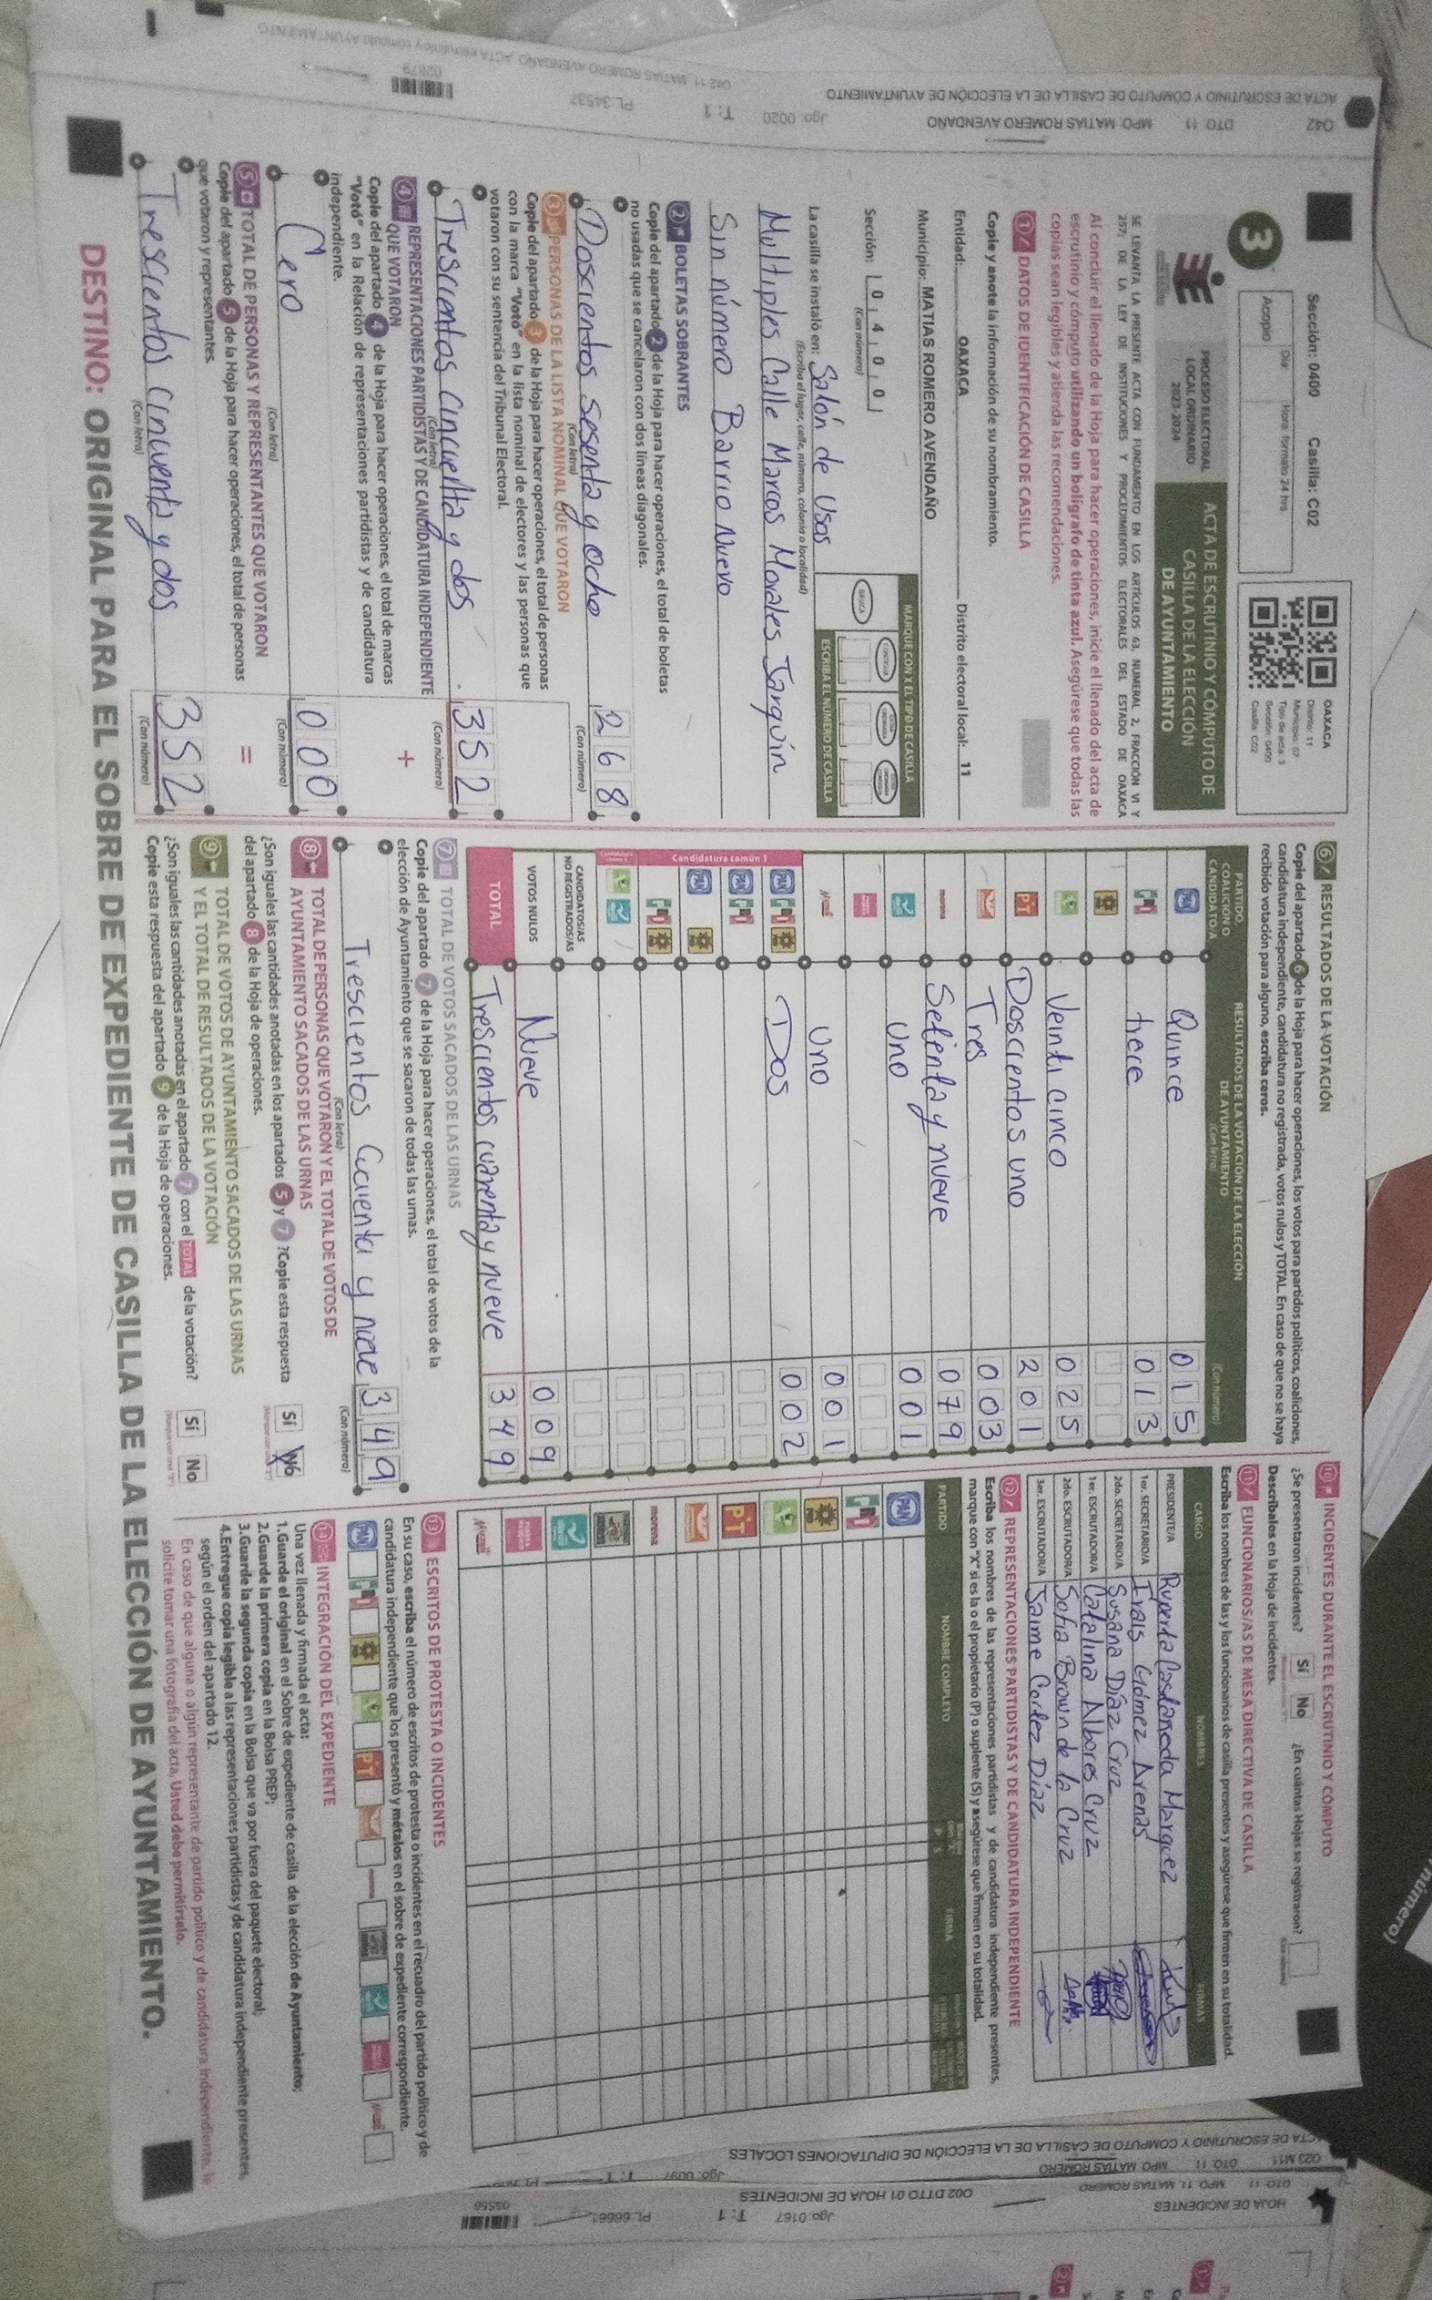 Sección: 0400 Casilla: C02
Día: Hora: formato 24 hrs
Acopio
3
OAXACA
Distrito: 11
Municipio: 57
Tipo de acta: 3
Sección: 0400
Casilla: C02
PROCESO ELECTORAL
LOCAL ORDINARIO
2023-2024
ACTA DE ESCRUTINIO Y CÓMPUTO DE
CASILLA DE LA ELECCIÓN
DE AYUNTAMIENTO
SE LEVANTA LA PRESENTE ACTA CON FUNDAMENTO EN LOS ARTÍCULOS 63, NUMERAL 2, FRACCIÓN VI Y
257, DE LA LEY DE INSTITUCIONES Y PROCEDIMIENTOS ELECTORALES DEL ESTADO DE OAXACA
Al concluir el llenado de la Hoja para hacer operaciones, inicie el llenado del acta de
escrutinio y cómputo utilizando un bolígrafo de tinta azul. Asegúrese que todas las
copias sean legibles y atienda las recomendaciones.
1 DATOS DE IDENTIFICACIÓN DE CASILLA
Copie y anote la información de su nombramiento.
Entidad: OAXACA Distrito electoral local: 11
Municipio: MATIAS ROMERO AVENDAÑO
Sección: 0 4 0 0
(Con número)
MARQUE CON X EL TIPO DE CASILLA
BÁSICA
ESCRIBA EL NÚMERO DE CASILLA
La casilla se instaló en: Salón de Usos
(Escriba el lugar, calle, número, colonia o localidad)
Multiples Calle Marcos Morales Jarquin
Sin número Barrio Nuevo
2 BOLETAS SOBRANTES
Copie del apartado 2 de la Hoja para hacer operaciones, el total de boletas
no usadas que se cancelaron con dos líneas diagonales.
Doscientos sesenta y ocho 268
(Con letra) (Con número)
3 PERSONAS DE LA LISTA NOMINAL QUE VOTARON
Copie del apartado 3 de la Hoja para hacer operaciones, el total de personas
con la marca "Votó" en la lista nominal de electores y las personas que
votaron con su sentencia del Tribunal Electoral.
Trescientos Cincuenta y dos 352
(Con letra) (Con número)
4 REPRESENTACIONES PARTIDISTAS Y DE CANDIDATURA INDEPENDIENTE
QUE VOTARON
+
Copie del apartado 4 de la Hoja para hacer operaciones, el total de marcas
"Votó" en la Relación de representaciones partidistas y de candidatura
independiente.
Cero 000
(Con letra) (Con número)
5 TOTAL DE PERSONAS Y REPRESENTANTES QUE VOTARON
=
Copie del apartado 5 de la Hoja para hacer operaciones, el total de personas
que votaron y representantes.
Trescientos cincuenta y dos 352
(Con letra) (Con número)
6 RESULTADOS DE LA VOTACIÓN
Copie del apartado 6 de la Hoja para hacer operaciones, los votos para partidos políticos, coaliciones,
candidatura independiente, candidatura no registrada, votos nulos y TOTAL. En caso de que no se haya
recibido votación para alguno, escriba ceros.
PARTIDO, COALICIÓN O CANDIDATO/A
RESULTADOS DE LA VOTACIÓN DE LA ELECCIÓN
DE AYUNTAMIENTO
(Con letra) (Con número)
PAN Quince 015
PRI trece 013
PRD
Veinti cinco 025
PT Doscientos uno 201
Tres 003
morena Setenta y nueve 079
Uno 001
Uno 001
Candidatura común 1
PAN PRI PRD Dos 002
PAN PRI
PAN PRD
PRI PRD
CANDIDATOS/AS
NO REGISTRADOS/AS
VOTOS NULOS Nueve 009
TOTAL Trescientos cuarenta y nueve 349
7 TOTAL DE VOTOS SACADOS DE LAS URNAS
Copie del apartado 7 de la Hoja para hacer operaciones, el total de votos de la
elección de Ayuntamiento que se sacaron de todas las urnas.
349
(Con letra) (Con número)
8 TOTAL DE PERSONAS QUE VOTARON Y EL TOTAL DE VOTOS DE
AYUNTAMIENTO SACADOS DE LAS URNAS
¿Son iguales las cantidades anotadas en los apartados 5 y 7 ? Copie esta respuesta
del apartado 8 de la Hoja de operaciones.
Sí No
9 TOTAL DE VOTOS DE AYUNTAMIENTO SACADOS DE LAS URNAS
Y EL TOTAL DE RESULTADOS DE LA VOTACIÓN
¿Son iguales las cantidades anotadas en el apartado 7 con el TOTAL de la votación?
Copie esta respuesta del apartado 9 de la Hoja de operaciones.
Sí No
10 INCIDENTES DURANTE EL ESCRUTINIO Y CÓMPUTO
¿Se presentaron incidentes? Sí No ¿En cuántas Hojas se registraron?
Descríbalos en la Hoja de incidentes.
11 FUNCIONARIOS/AS DE MESA DIRECTIVA DE CASILLA
Escriba los nombres de las y los funcionarios de casilla presentes y asegúrese que firmen en su totalidad.
CARGO NOMBRES FIRMAS
PRESIDENTE/A Ruperta Castañeda Marquez
1er. SECRETARIO/A Irais Gómez Arenas
2do. SECRETARIO/A Susana Díaz Cruz
1er. ESCRUTADOR/A Catalina Nbores Cruz
2do. ESCRUTADOR/A Sofia Brown de la Cruz
3er. ESCRUTADOR/A Jaime Cortez Díaz
12 REPRESENTACIONES PARTIDISTAS Y DE CANDIDATURA INDEPENDIENTE
Escriba los nombres de las representaciones partidistas y de candidatura independiente presentes,
marque con "X" si es la o el propietario (P) o suplente (S) y asegúrese que firmen en su totalidad.
PARTIDO NOMBRE COMPLETO FIRMA
PAN
PRI
PRD
PT
morena
13 ESCRITOS DE PROTESTA O INCIDENTES
En su caso, escriba el número de escritos de protesta o incidentes en el recuadro del partido político y de
candidatura independiente que los presentó y métalos en el sobre de expediente correspondiente.
14 INTEGRACIÓN DEL EXPEDIENTE
Una vez llenada y firmada el acta:
1.Guarde el original en el Sobre de expediente de casilla de la elección de Ayuntamiento;
2.Guarde la primera copia en la Bolsa PREP;
3.Guarde la segunda copia en la Bolsa que va por fuera del paquete electoral;
4.Entregue copia legible a las representaciones partidistas y de candidatura independiente presentes,
según el orden del apartado 12.
En caso de que alguna o algún representante de partido político y de candidatura independiente, le
solicite tomar una fotografía del acta, Usted debe permitírselo.
DESTINO: ORIGINAL PARA EL SOBRE DE EXPEDIENTE DE CASILLA DE LA ELECCIÓN DE AYUNTAMIENTO.
ACTA DE ESCRUTINIO Y CÓMPUTO DE CASILLA DE LA ELECCIÓN DE AYUNTAMIENTO
042 DTO. 11 MPO. MATIAS ROMERO AVENDAÑO
Jgo: 0020 T: 1 PL: 34537
02879
ACTA DE ESCRUTINIO Y CÓMPUTO DE CASILLA DE LA ELECCIÓN DE DIPUTACIONES LOCALES
HOJA DE INCIDENTES
002 DTTO 01 HOJA DE INCIDENTES
Jgo: 0167 T: 1 PL: 66661
número)